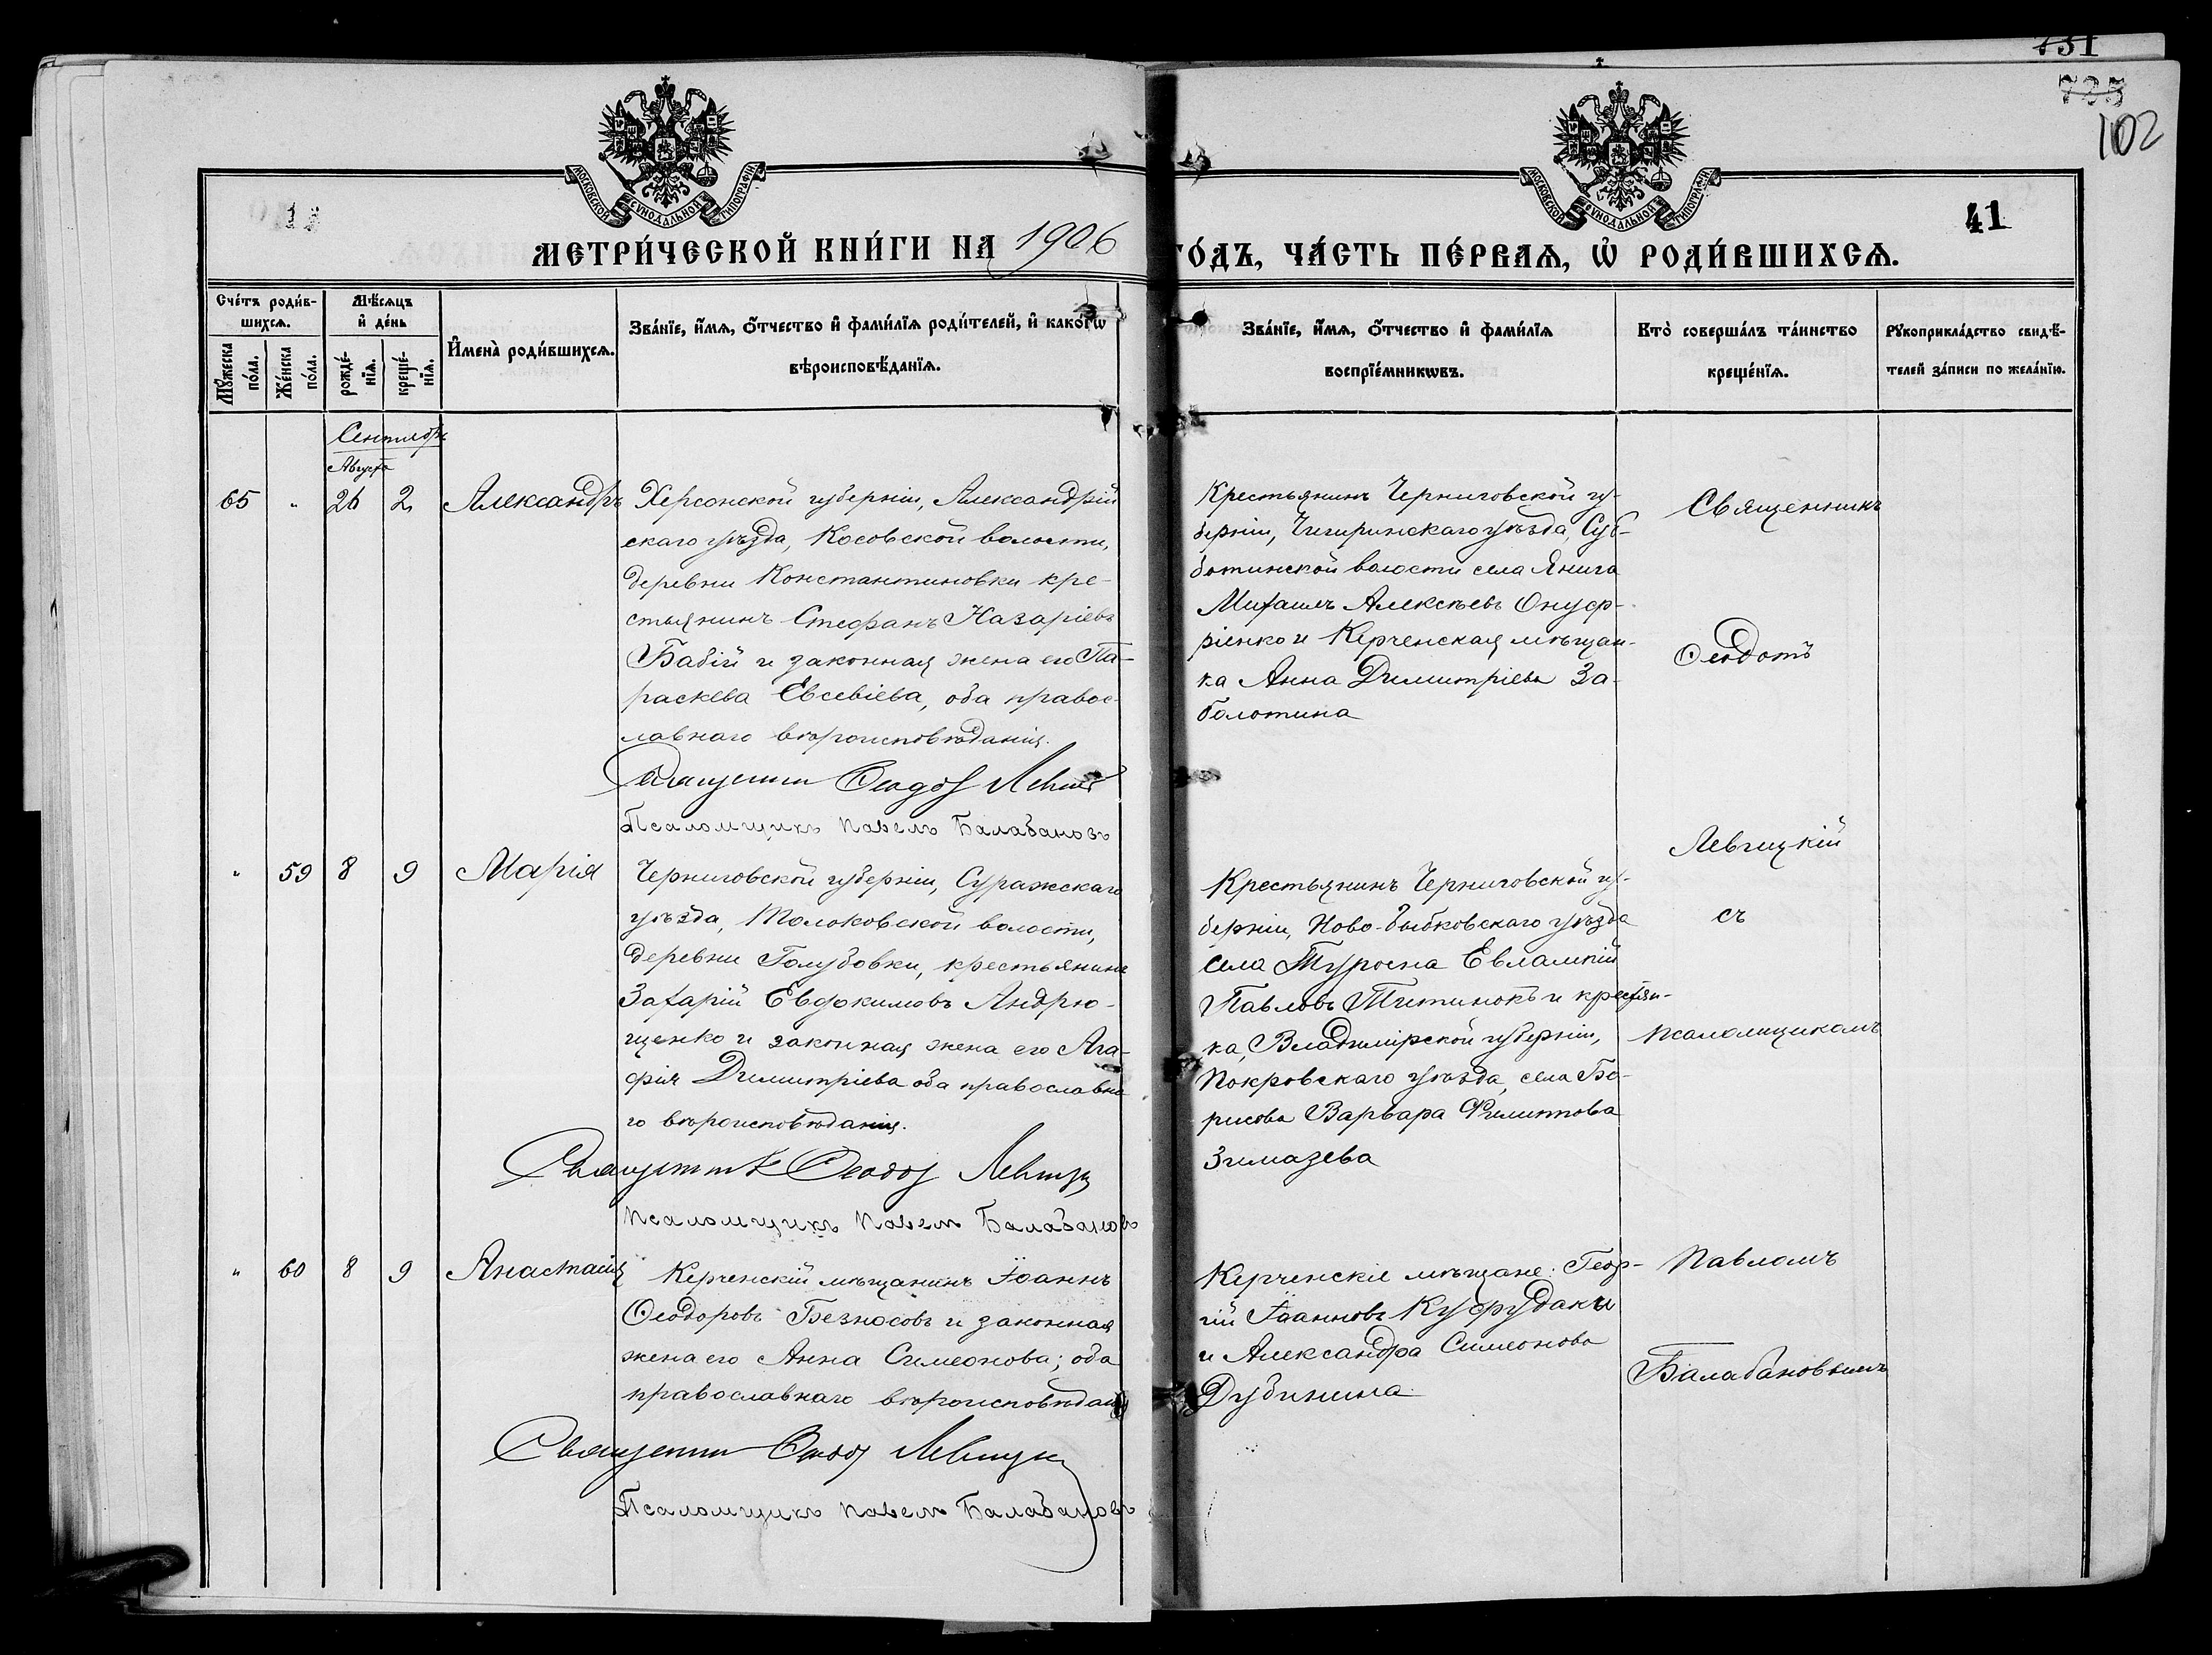 731
725
102
МОСКОВСКОЙ СѴНОДАЛЬНОЙ ТИПОГРАФІИ
МОСКОВСКОЙ СѴНОДАЛЬНОЙ ТИПОГРАФІИ
41
МЕТРИ́ЧЕСКОЙ КНИ́ГИ НА 1906 ГО́ДЪ, ЧА́СТЬ ПЕ́РВАѦ, Ѡ҆ РОДИ́ВШИХСѦ.
Сче́тъ роди́в-
шихсѧ.
Мꙋ́жеска по́ла.
Же́нска по́ла.
Мѣ́сѧцъ
и҆ де́нь
рожде́-
нїѧ.
креще́-
нїѧ.
И҆мена̀ роди́вшихсѧ.
Зва́нїе, и҆́мѧ, ѻ҆́тчество и҆ фами́лїѧ роди́телей, и҆ како́гѡ
вѣроисповѣ́данїѧ.
Зва́нїе, и҆́мѧ, ѻ҆́тчество и҆ фами́лїѧ
воспрїе́мникѡвъ.
Кто̀ соверша́лъ та́инство
креще́нїѧ.
Рꙋкоприкла́дство свидѣ́-
телей за́писи по жела́нїю.
Сентябрь
Августа
65 " 26 2 Александръ
Херсонской губерніи, Александрій
скаго уѣзда, Косовской волости,
деревни Константиновки кре-
стьянинъ Стефанъ Назаріевъ
Бабій и законная жена его Па-
раскева Евсевіева, оба правос-
лавнаго вѣроисповѣданія.
Священник Ѳеодот Левиц
Псаломщикъ Павелъ Балабановъ
Крестьянинъ Черниговской гу-
берніи, Чигиринскаго уѣзда, Суб-
ботинской волости села Янича
Михаилъ Алексѣевъ Онуф-
ріенко и Керченская мѣщан-
ка Анна Димитріева За-
болотина
Священникъ
Ѳеодотъ
Левицкій
съ
псаломщикомъ
Павломъ
Балабановымъ
" 59 8 9 Марія
Черниговской губерніи, Суражскаго
уѣзда, Молоковской волости,
деревни Голубовки, крестьянинъ
Захарій Евдокимовъ Андрю-
щенко и законная жена его Ага-
фія Димитріева оба православна-
го вѣроисповѣданія.
Священник Ѳеодот Левицк
Псаломщикъ Павелъ Балабановъ
Крестьянинъ Черниговской гу-
берніи, Ново-быбковскаго уѣзда
села Туросна Евлампій
Павловъ Титинокъ и крестьян-
ка, Владимірской губерніи,
Покровскаго уѣзда, села Бо-
рисова Варвара Филиппова
Зимазева
" 60 8 9 Анастасія
Керченскій мѣщанинъ Іоаннъ
Ѳеодоровъ Безносовъ и законная
жена его Анна Симеонова; оба
православнаго вѣроисповѣданія
Священник Ѳеодот Левицк
Псаломщикъ Павелъ Балабановъ
Керченскіе мѣщане: Геор-
гій Іоанновъ Куфрудаки
и Александра Симеонова
Дубинина.